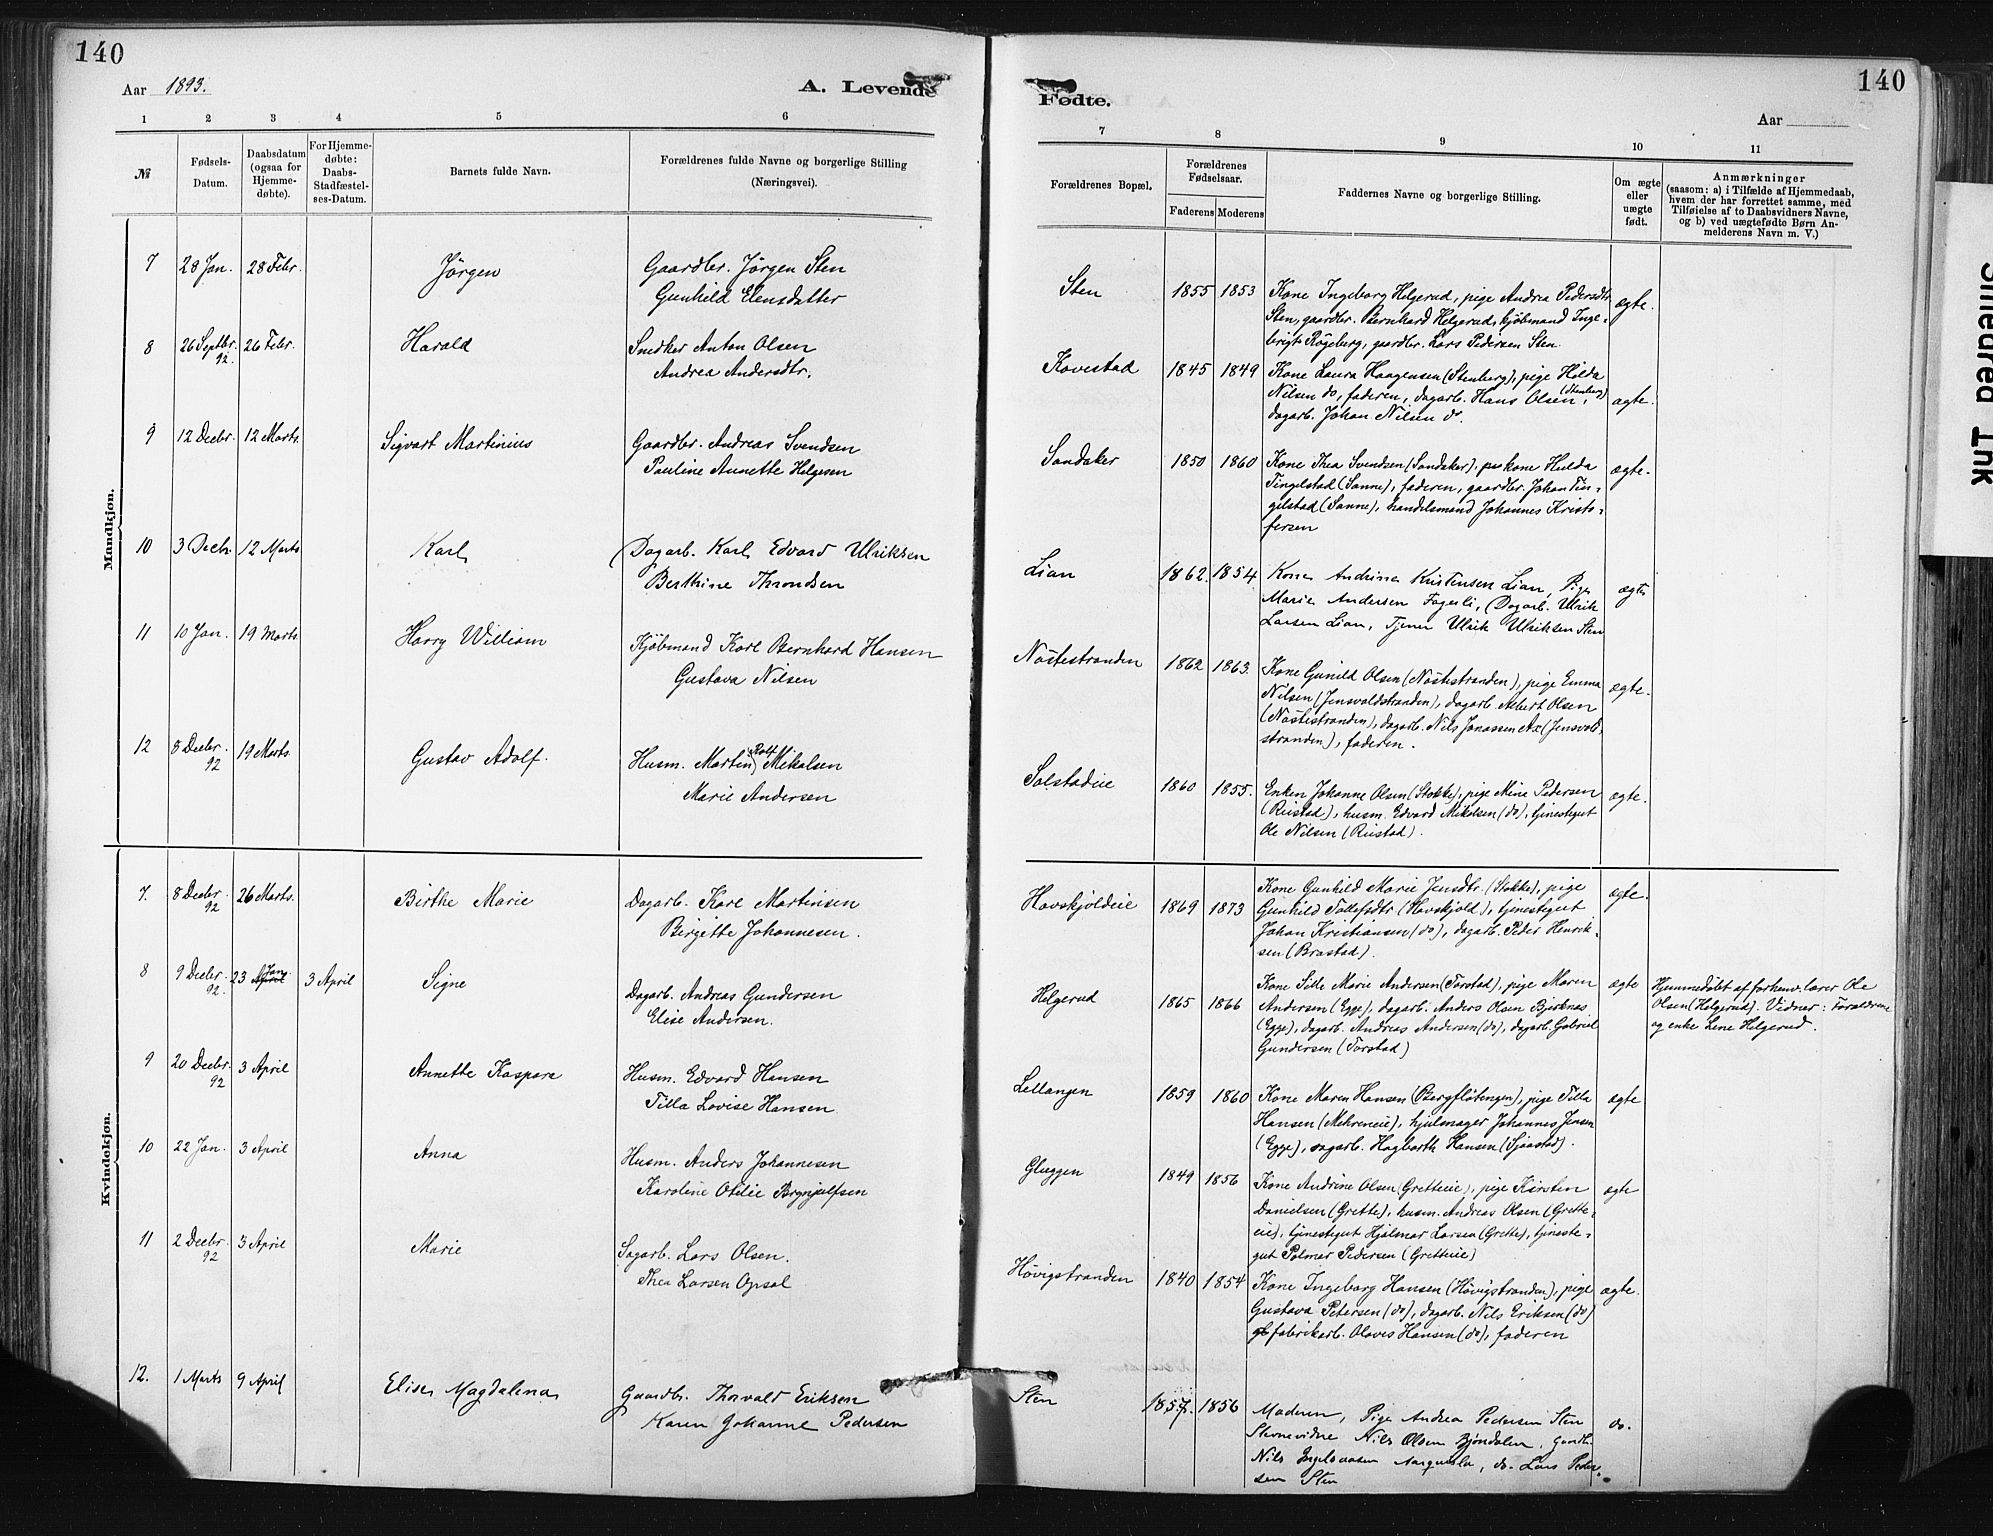 140
Aar 1893.
A. Levende
1 2 3 4 5 6
№
Fødsels-Datum.
Daabsdatum (ogsaa for Hjemmedøbte).
For Hjemmedøbte: Daabs-Stadfæstelses-Datum.
Barnets fulde Navn.
Forældrenes fulde Navne og borgerlige Stilling (Næringsvei).
Mandkjøn.
7 28 Jan. 28 Febr. Jörgen Gaardbr. Jörgen Sten
Gunhild Elensdatter
8 26 Septbr. 92. 26 Febr. Harald Snedker Anton Olsen
Andrea Andersdtr.
9 12 Decbr. 12 Marts. Sigvart Martinius Gaardbr. Andreas Svendsen
Pauline Annette Helgesen
10 3 Decbr 12 Marts Karl Dagarb. Karl Edvard Ulriksen
Berthine Throndsen
11 10 Jan. 19 Marts. Harry William Kjöbmand Karl Bernhard Hansen
Gustava Nilsen
12 8 Decbr. 92 19 Marts Gustav Adolf. Husm. Martin Rolf Mikalsen
Marie Andersen
Kvindekjøn.
7. 8 Decbr. 92 26 Marts. Birthe Marie Dagarb. Karl Martinsen
Birgitte Johannesen.
8 9 Decbr. 92. 23 April Jan. 3 April Signe Dagarb. Andreas Gundersen
Elise Andersen.
9 20 Decbr. 92 3 April Annette Kaspara Husm. Edvard Hansen
Tilla Lovise Hansen
10 22 Jan. 3 April Anna Husm. Anders Johannesen
Karoline Otilie Brynjulfsen
11 2 Decbr. 92 3 April Marie Sagarb. Lars Olsen.
Thea Larsen Opsal
12. 1 Marts 9 April Elise Magdalena Gaardbr. Thorvald Eriksen
Karen Johanne Pedersen
140
Fødte.
Aar
7 8 9 10 11
Forældrenes Bopæl.
Forældrenes Fødselsaar.
Faderens Moderens
Faddernes Navne og borgerlige Stilling.
Om ægte eller uægte født.
Anmærkninger
(saasom: a) i Tilfælde af Hjemmedaab,
hvem der har forrettet samme, med
Tilføielse af to Daabsvidners Navne,
og b) ved uægtefødte Børn Anmelderens Navn m. V.)
Sten 1855 1853 Kone Ingeborg Helgerud, pige Andrea Pedersdtr. ægte.
Sten, gaardbr. Bernhard Helgerud, kjöbmand Inge-
brigt Rögeberg, gaardbr. Lars Pedersen Sten.
Kovestad 1845 1849 Kone Laura Haagensen (Stenberg), pige Hilda
Nilsen do, faderen, dagarb. Hans Olsen (Stenberg), ægte.
dagarb. Johan Nilsen do.
Sandaker 1850 1860 Kone Thea Svendsen (Sandaker), kone Hulda ægte.
Tingelstad (Sanne), faderen, gaardbr. Johan Tin-
gelstad (Sanne), handelsmand Johannes Kristo-
fersen
Lian 1862. 1854 Kone Andrine Kristensen Lian, Pige ægte
Marie Andersen Fagerli, Dagarb. Ulrik
Larsen Lian, Tjener Ulrik Ulriksen Sten
Nöstestranden 1862 1863. Kone Gunild Olsen (Nöstestranden), pige Emma ægte.
Nilsen (Jensvoldstranden), dagarb. Albert Olsen
(Nöstestranden), dagarb. Nils Jonassen Ax (Jensvold-
stranden), faderen.
Solstadeie 1860 1855. Enken Johanne Olsen (Stokke), pige Mine Pedersen ægte.
(Riistad), husm. Edvard Mikalsen (do), tjenestegut
Ole Nilsen (Riistad).
Havskjöldeie 1869 1873 Kone Gunhild Marie Jensdtr. (Stokke), pige ægte.
Gunhild Tollefsdtr (Havskjold), tjenestegut
Johan Kristiansen (do), dagarb. Peder Henrik-
sen (Brastad).
Helgerud 1865 1866 Kone Sille Marie Andersen (Torstad), pige Maren ægte
Andersen (Egge), dagarb. Anders Olsen Bjerknæs
(Egge), dagarb. Andreas Andersen (do), dagarb. Gabriel
Gundersen (Torstad)
Hjemmedöbt af forhenv. lærer Ole
Olsen (Helgerud). Vidner: Forældrene
og enke Lene Helgerud.
Lellangen 1859 1860 Kone Maren Hansen (Bergflötengen), pige Tilla ægte
Hansen (Mehreneie), hjulmager Johannes Jensen
(Egge), dagarb. Hagbarth Hansen (Sjaastad).
Gluggen 1849 1856 Kone Andrine Olsen (Gretteeie), pige Kirsten ægte
Danielsen (Grette), husm. Andreas Olsen (Grette-
eie), tjenestegut Hjalmar Larsen (Grette), tjeneste-
gut Palmar Pedersen (Gretteeie)
Hövigstranden 1840 1854 Kone Ingeborg Hansen (Hövigstranden), pige ægte.
Gustava Petersen (do), dagarb. Nils Eriksen (do)
fabrikarb. Olaves Hansen (do), faderen
Sten 1857. 1856 Moderen, Pige Andrea Pedersen Sten do.
Stevnevidne Nils Olsen Bjöndalen, Gaardbr.
Nils Ingebr do. Lars Peder-
sen Sten
Smedrud Ink